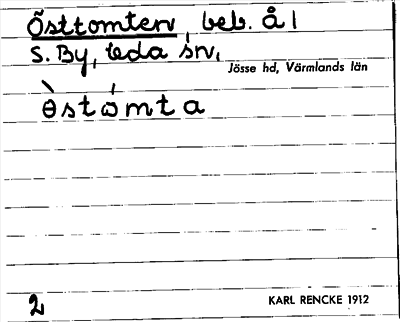 Östtomten, beb. å 1
S. By, Eda sn,
Jösse hd, Värmlands län
ɵ̀stómta
2
KARL RENCKE 1912